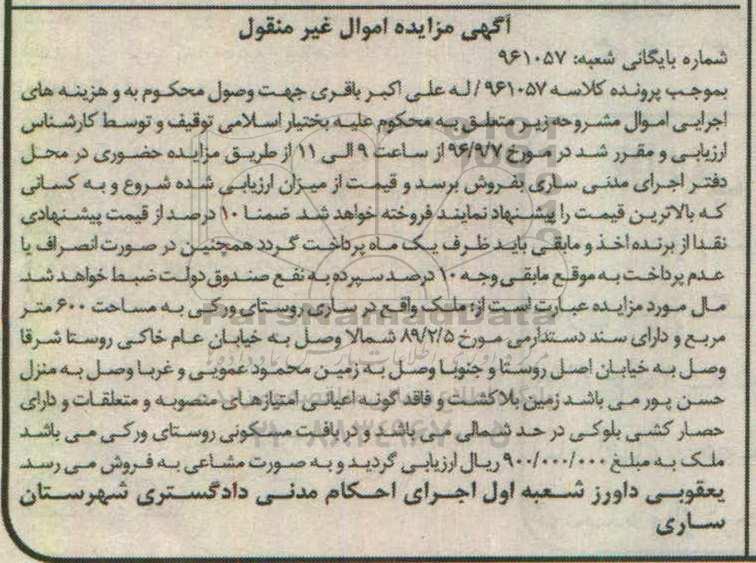 آگهی مزایده اموال غیر منقول
شماره بایگانی شعبه: ۹۶۱۰۵۷
بموجب پرونده کلاسه ۹۶۱۰۵۷/ له علی اکبر باقری جهت وصول محکوم به و هزینه های
اجرایی اموال مشروحه زیر متعلق به محکوم علیه بختیار اسلامی توقیف و توسط کارشناس
ارزیابی و مقرر شد در مورخ ۹۶/۹/۷ از ساعت ۹ الی ۱۱ از طریق مزایده حضوری در محل
دفتر اجرای مدنی ساری بفروش برسد و قیمت از میزان ارزیابی شده شروع و به کسانی
که بالاترین قیمت را پیشنهاد نمایند فروخته خواهد شد. ضمنا ۱۰ درصد از قیمت پیشنهادی
نقدا از برنده اخذ و مابقی باید ظرف یک ماه پرداخت گردد همچنین در صورت انصراف یا
عدم پرداخت به موقع مابقی وجه ۱۰ درصد سپرده به نفع صندوق دولت ضبط خواهد شد.
مال مورد مزایده عبارت است از: ملک واقع در ساری روستای ورکی به مساحت ۶۰۰ متر
مربع و دارای سند دستدارمی مورخ ۸۹/۲/۵ شمالا وصل به خیابان عام خاکی روستا شرقا
وصل به خیابان اصل روستا و جنوبا وصل به زمین محمود عموبی و غربا وصل به منزل
حسن پور می باشد زمین بلاکشت و فاقد گونه اعیانی امتیازهای منصوبه و متعلقات و دارای
حصار کشی بلوکی در حد شمالی می باشد و در بافت مسکونی روستای ورکی می باشد
ملک به مبلغ ۹۰۰/۰۰۰/۰۰۰ ریال ارزیابی گردید و به صورت مشاعی به فروش می رسد.
یعقوبی داورز شعبه اول اجرای احکام مدنی دادگستری شهرستان
ساری
ParsNamadData